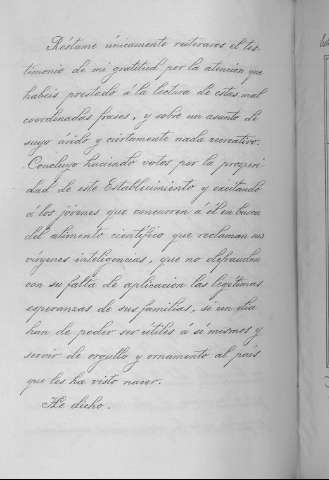 Réstame únicamente reiteraros el tes-
timonio de mi gratitud por la atencion que
habeis prestado á la lectura de estas mal
coordinadas frases, y sobre un asunto de
suyo árido y ciertamente nada recreativo.
Concluyo haciendo votos por la prosperi-
dad de este Establecimiento y exitando
á los jóvenes que concurren á él en busca
del alimento científico que reclaman sus
vírgenes inteligencias, que no defrauden
con su falta de aplicacion las legítimas
esperanzas de sus familias, si un dia
han de poder ser útiles á sí mismos y
servir de orgullo y ornamento al país
que les ha visto nacer.
He dicho.